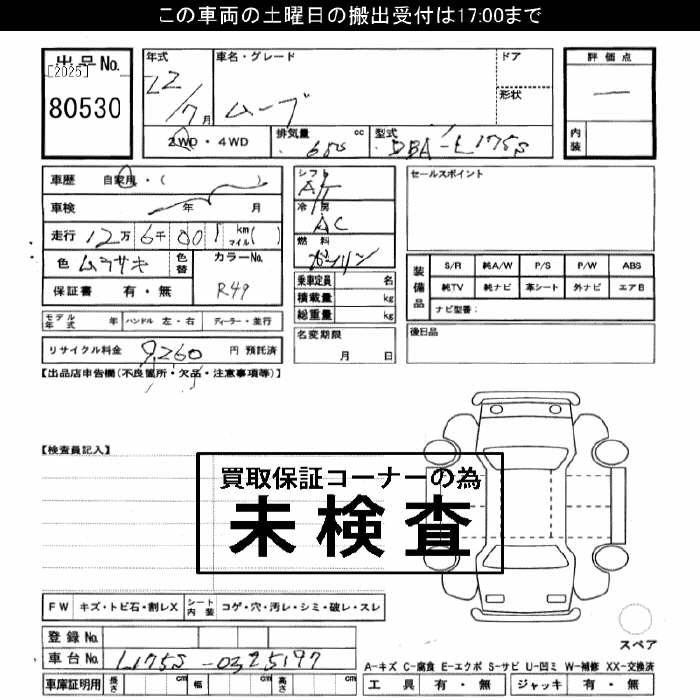 この車両の土曜日の搬出受付は17:00まで
出品No.
[2025]
80530
年式
22/7月
車名・グレード
ムーブ
ドア
形状
評価点
内装
2WD・4WD
排気量 cc
型式
DBA-L175S
車歴 自家用・( )
車検 年 月
走行 12万6千001km マイル( )
色 ムラサキ
色替
カラーNo.
R49
保証書 有・無
シフト
AT
冷房
AC
燃料
ガソリン
乗車定員 名
積載量 kg
総重量 kg
名変期限
月 日
セールスポイント
装備品
S/R 純A/W P/S P/W ABS
純TV 純ナビ 革シート 外ナビ エアB
ナビ型番:
後日品
モデル年式 年 ハンドル 左・右 ディーラー・並行
リサイクル料金 9,260 円 預託済
【出品店申告欄(不良箇所・欠品・注意事項等)】
【検査員記入】
買取保証コーナーの為
未検査
FW キズ・トビ石・割レX シート内装 コゲ・穴・汚レ・シミ・破レ・スレ
登録No.
車台No. L175S-0325197
車庫証明用 長さ cm 幅 cm 高さ cm
スペア
A-キズ C-腐食 E-エクボ S-サビ U-凹ミ W-補修 XX-交換済
工具 有・無 ジャッキ 有・無